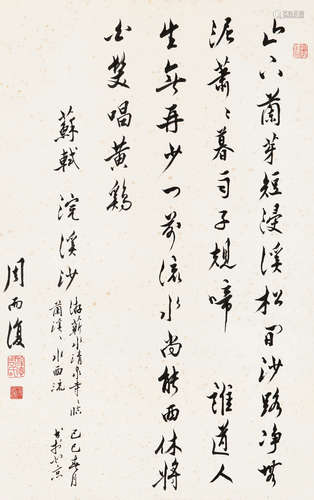 山下蘭芽短浸溪松間沙路净無
泥蕭蕭暮雨子規啼 誰道人
生無再少門前流水尚能西休將
白髮唱黄鷄
蘇軾 浣溪沙
游蘄水清泉寺寺臨
蘭溪溪水西流
己巳春月
書於北京
周而復